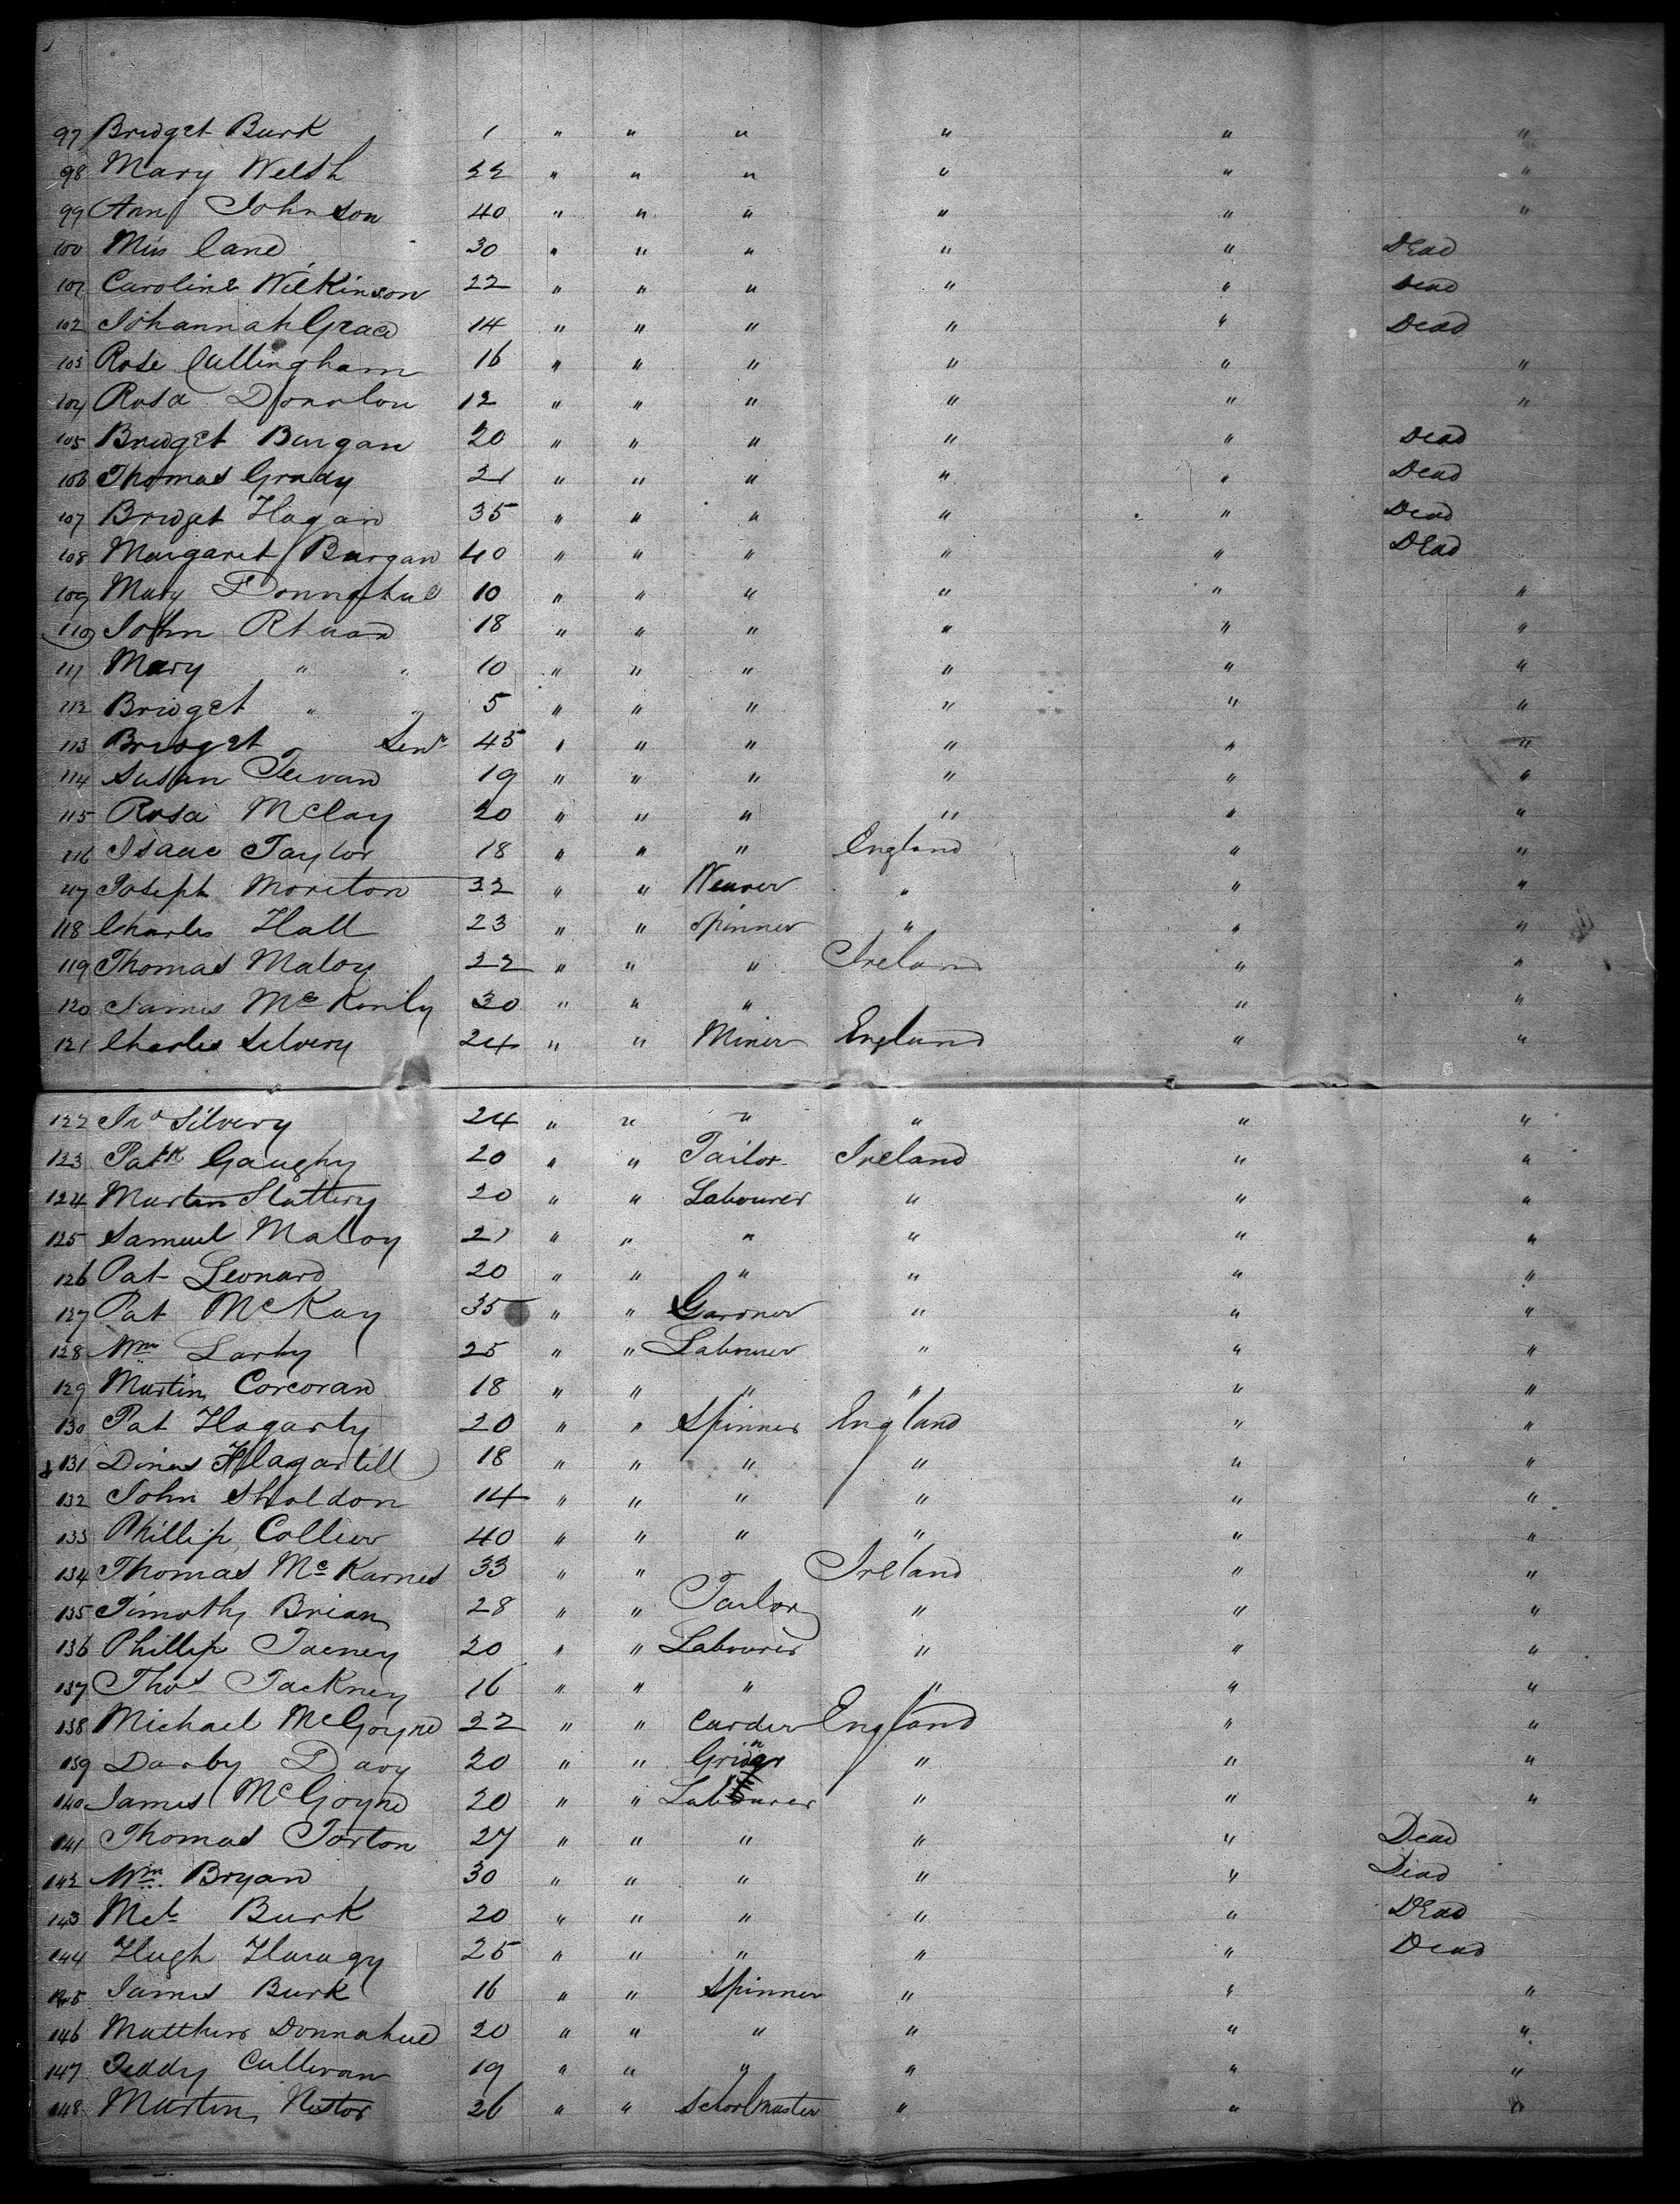 97 Bridget Burk 1 " " " " " "
98 Mary Welsh 22 " " " " " "
99 Ann Johnson 40 " " " " " "
100 Miss Cane 30 " " " " " Dead
101 Caroline Wilkinson 22 " " " " " Dead
102 Johannah Grace 14 " " " " " Dead
103 Rose Cullingham 16 " " " " " "
104 Rosa Donolon 12 " " " " " "
105 Bridget Burgan 20 " " " " " Dead
106 Thomas Grady 21 " " " " " Dead
107 Bridget Hagan 35 " " " " " Dead
108 Margaret Burgan 40 " " " " " Dead
109 Mary Donnahue 10 " " " " " "
110 John Rhuan 18 " " " " " "
111 Mary " " 10 " " " " " "
112 Bridget " " 5 " " " " " "
113 Bridget Senr 45 " " " " " "
114 Susan Teevan 19 " " " " " "
115 Rosa McClay 20 " " " " " "
116 Isaac Taylor 18 " " " England " "
117 Joseph Moreton 32 " " Weaver " " "
118 Charles Hall 23 " " Spinner " " "
119 Thomas Maloy 22 " " " Ireland " "
120 James Mc Konly 30 " " " " "
121 Charles Silvery 24 " " Miner England " "
122 Jno Silvery 24 " " " " " "
123 Patk Gaughy 20 " " Tailor Ireland " "
124 Martin Slattery 20 " " Labourer " " "
125 Samuel Maloy 21 " " " " " "
126 Pat Leonard 20 " " " " " "
127 Pat McKay 35 " " Gardner " " "
128 Wm Larhy 25 " " Labourer " " "
129 Martin Corcoran 18 " " " " " "
130 Pat Hagarty 20 " " Spinner England " "
131 Hagartell 18 " " " " " "
132 John Sholdon 14 " " " " " "
133 Phillip Collier 40 " " " " " "
134 Thomas Mc Karnes 33 " " Ireland " "
135 Timothy Brian 28 " " Tailor " " "
136 Phillip Taeney 20 " " Labourer " " "
137 Thos Tackney 16 " " " " " "
138 Michael McGoyne 22 " " Carder England " "
139 Darby Davy 20 " " " " "
140 James McGoyne 20 " " Labourer " " "
141 Thomas Torton 27 " " " " " Dead
142 Wm Bryan 30 " " " " " Dead
143 Burk 20 " " " " " Dead
144 Hugh Haragy 25 " " " " " Dead
145 James Burk 16 " " Spinner " " "
146 Matthew Donnahue 20 " " " " " "
147 Teddy Cullivan 19 " " " " " "
148 Martin Nestor 26 " " Schoolmaster " " "